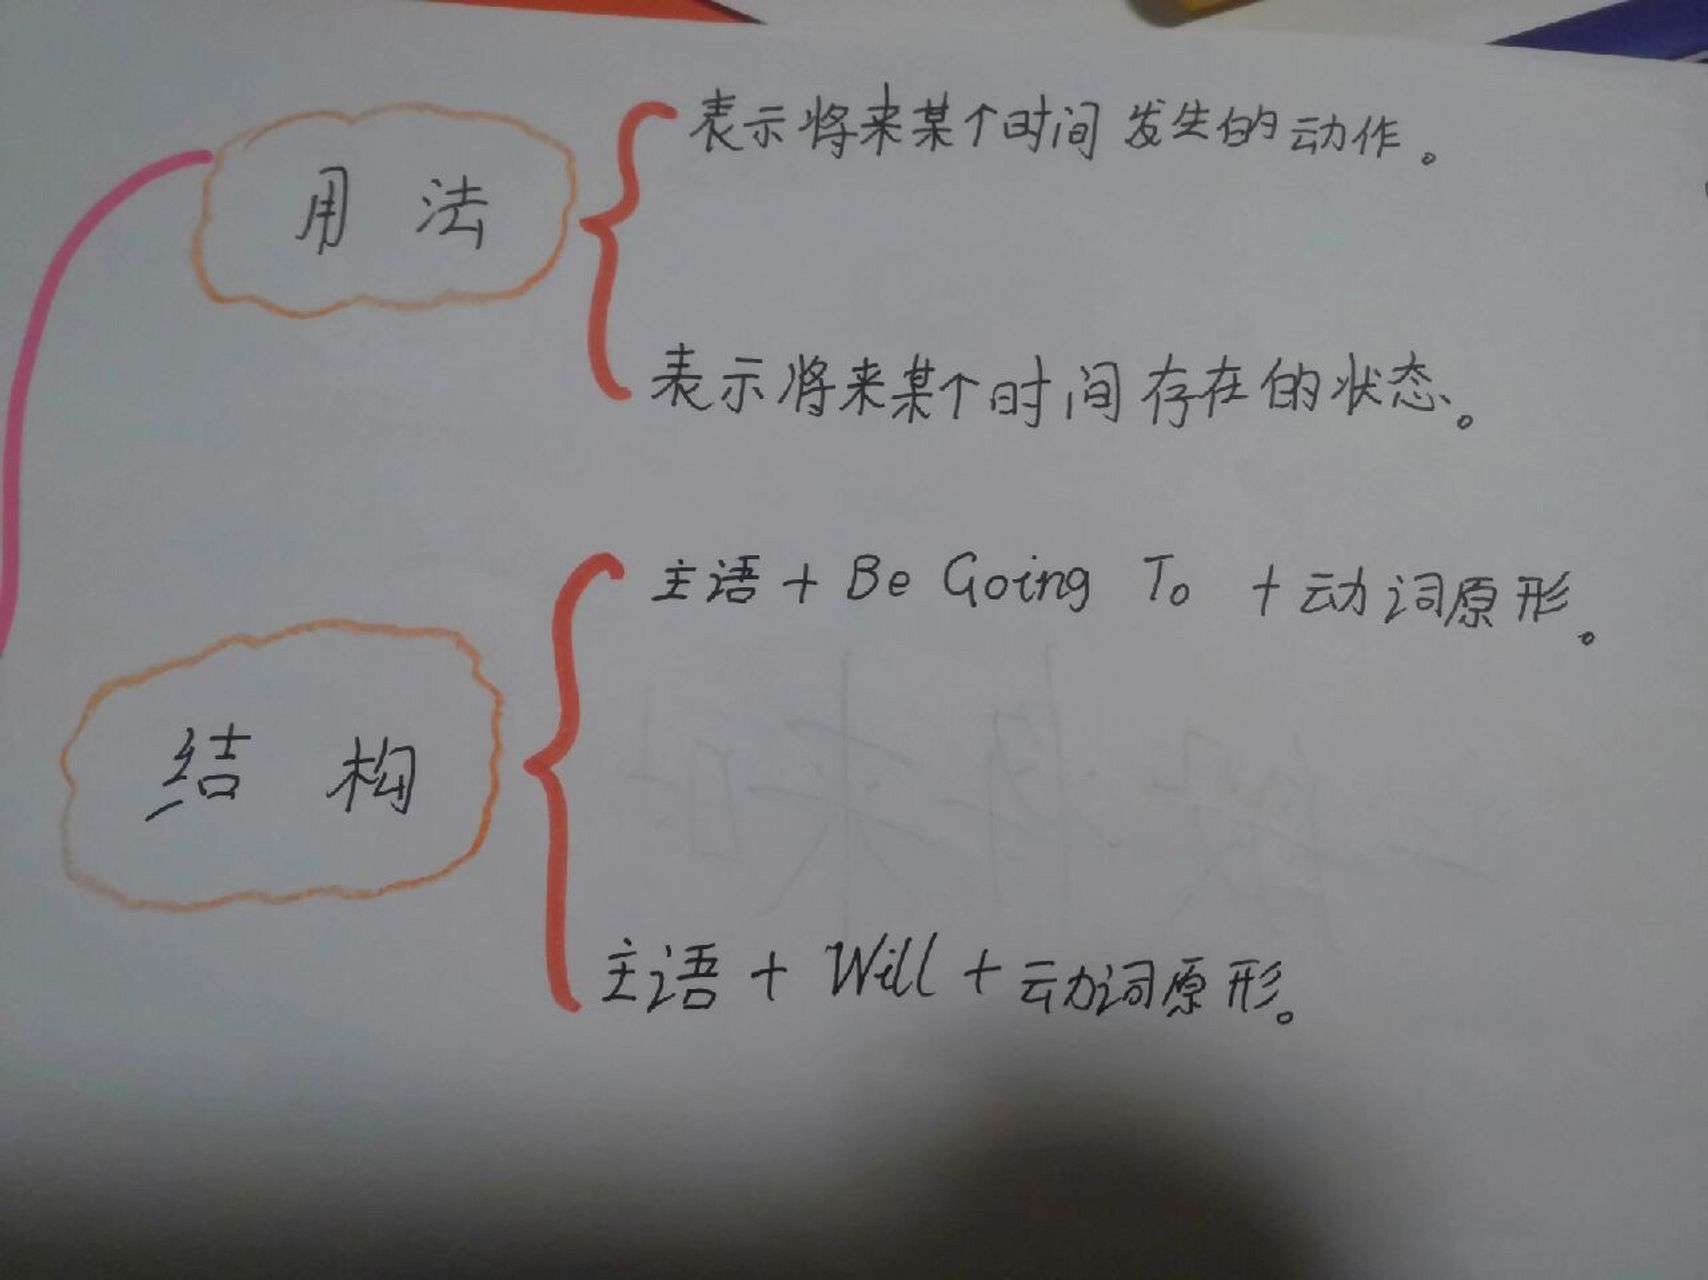 用法
表示将来某个时间发生的动作。
表示将来某个时间存在的状态。
结构
主语 + Be Going To + 动词原形。
主语 + Will + 动词原形。